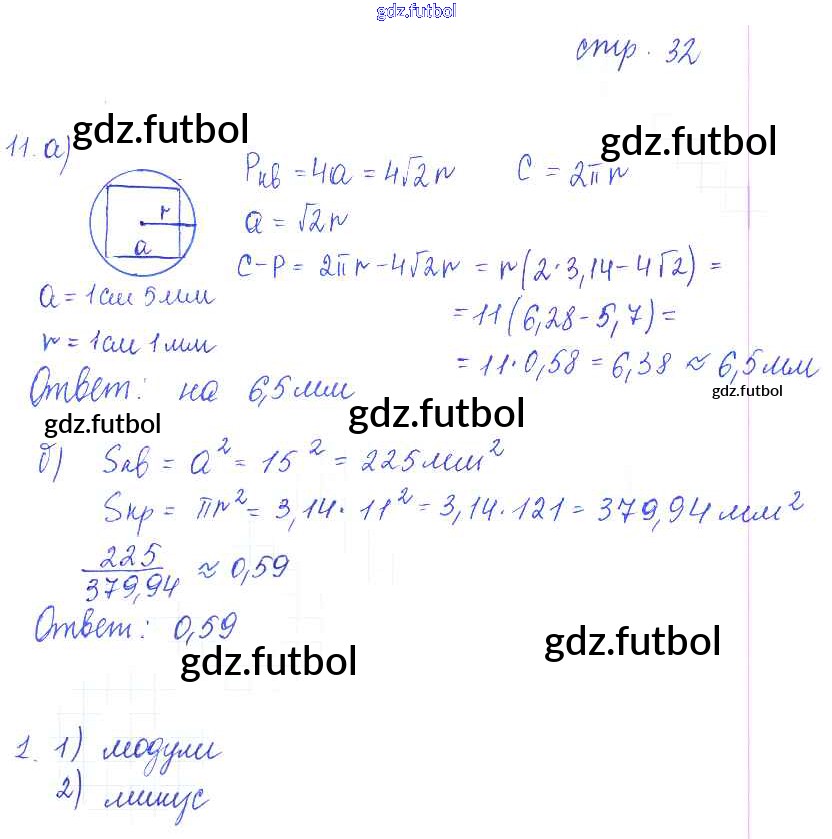 gdz.futbol
стр. 32
gdz.futbol
gdz.futbol
11. а)
Pкв = 4a = 4√2r C = 2πr
r
a
a = √2r
C-P = 2πr-4√2r = r(2·3,14-4√2) =
a = 1см 5мм
= 11(6,28-5,7)=
r = 1см 1мм
= 11·0,58 = 6,38 ≈ 6,5мм
Ответ: на 6,5мм
gdz.futbol
gdz.futbol
gdz.futbol
б) Sкв = a² = 15² = 225мм²
Sкр = πr² = 3,14·11² = 3,14·121 = 379,94мм²
225/379,94 ≈ 0,59
Ответ: 0,59
gdz.futbol
gdz.futbol
1. 1) модули
2) минус